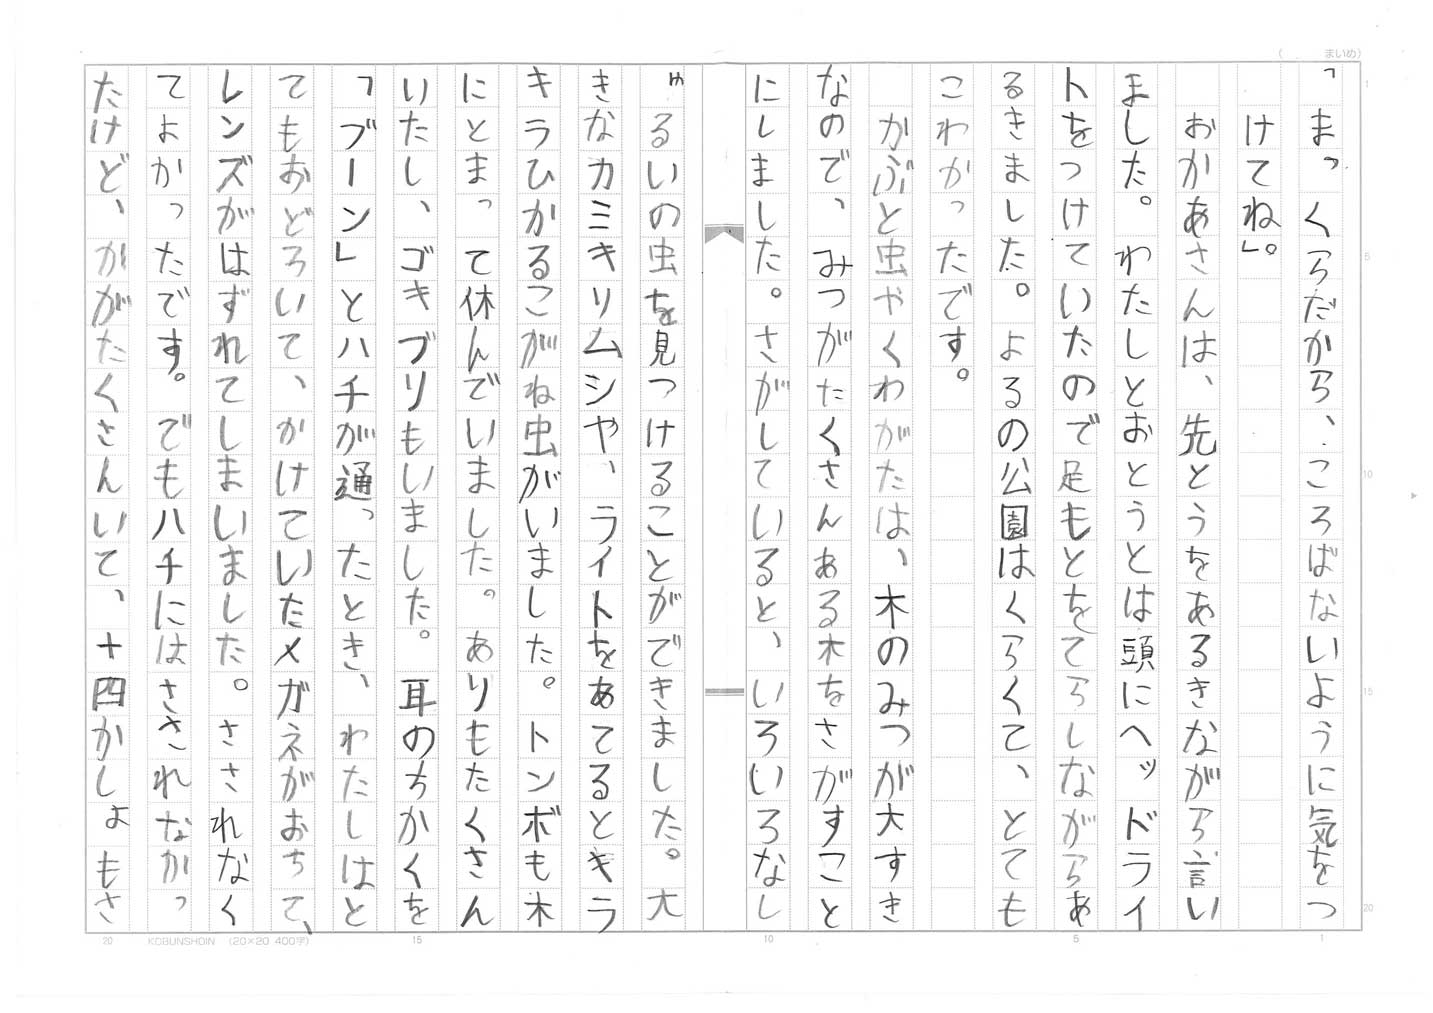 (　まいめ)
「まっくらだから、ころばないように気をつ
けてね」。
おかあさんは、先とうをあるきながら言い
ました。わたしとおとうとは頭にヘッドライ
トをつけていたので足もとをてらしながらあ
るきました。よるの公園はくらくて、とても
こわかったです。
かぶと虫やくわがたは、木のみつが大すき
なので、みつがたくさんある木をさがすこと
にしました。さがしていると、いろいろなし
ゅるいの虫を見つけることができました。大
きなカミキリムシや、ライトをあてるとキラ
キラひかるこがね虫がいました。トンボも木
にとまって休んでいました。ありもたくさん
いたし、ゴキブリもいました。耳のちかくを
「ブーン」とハチが通ったとき、わたしはと
てもおどろいて、かけていたメガネがおちて、
レンズがはずれてしまいました。さされなく
てよかったです。でもハチにはさされなかっ
たけど、かがたくさんいて、十四かしょもさ
1 5 10 15 20
KOBUNSHOIN (20×20 400字)